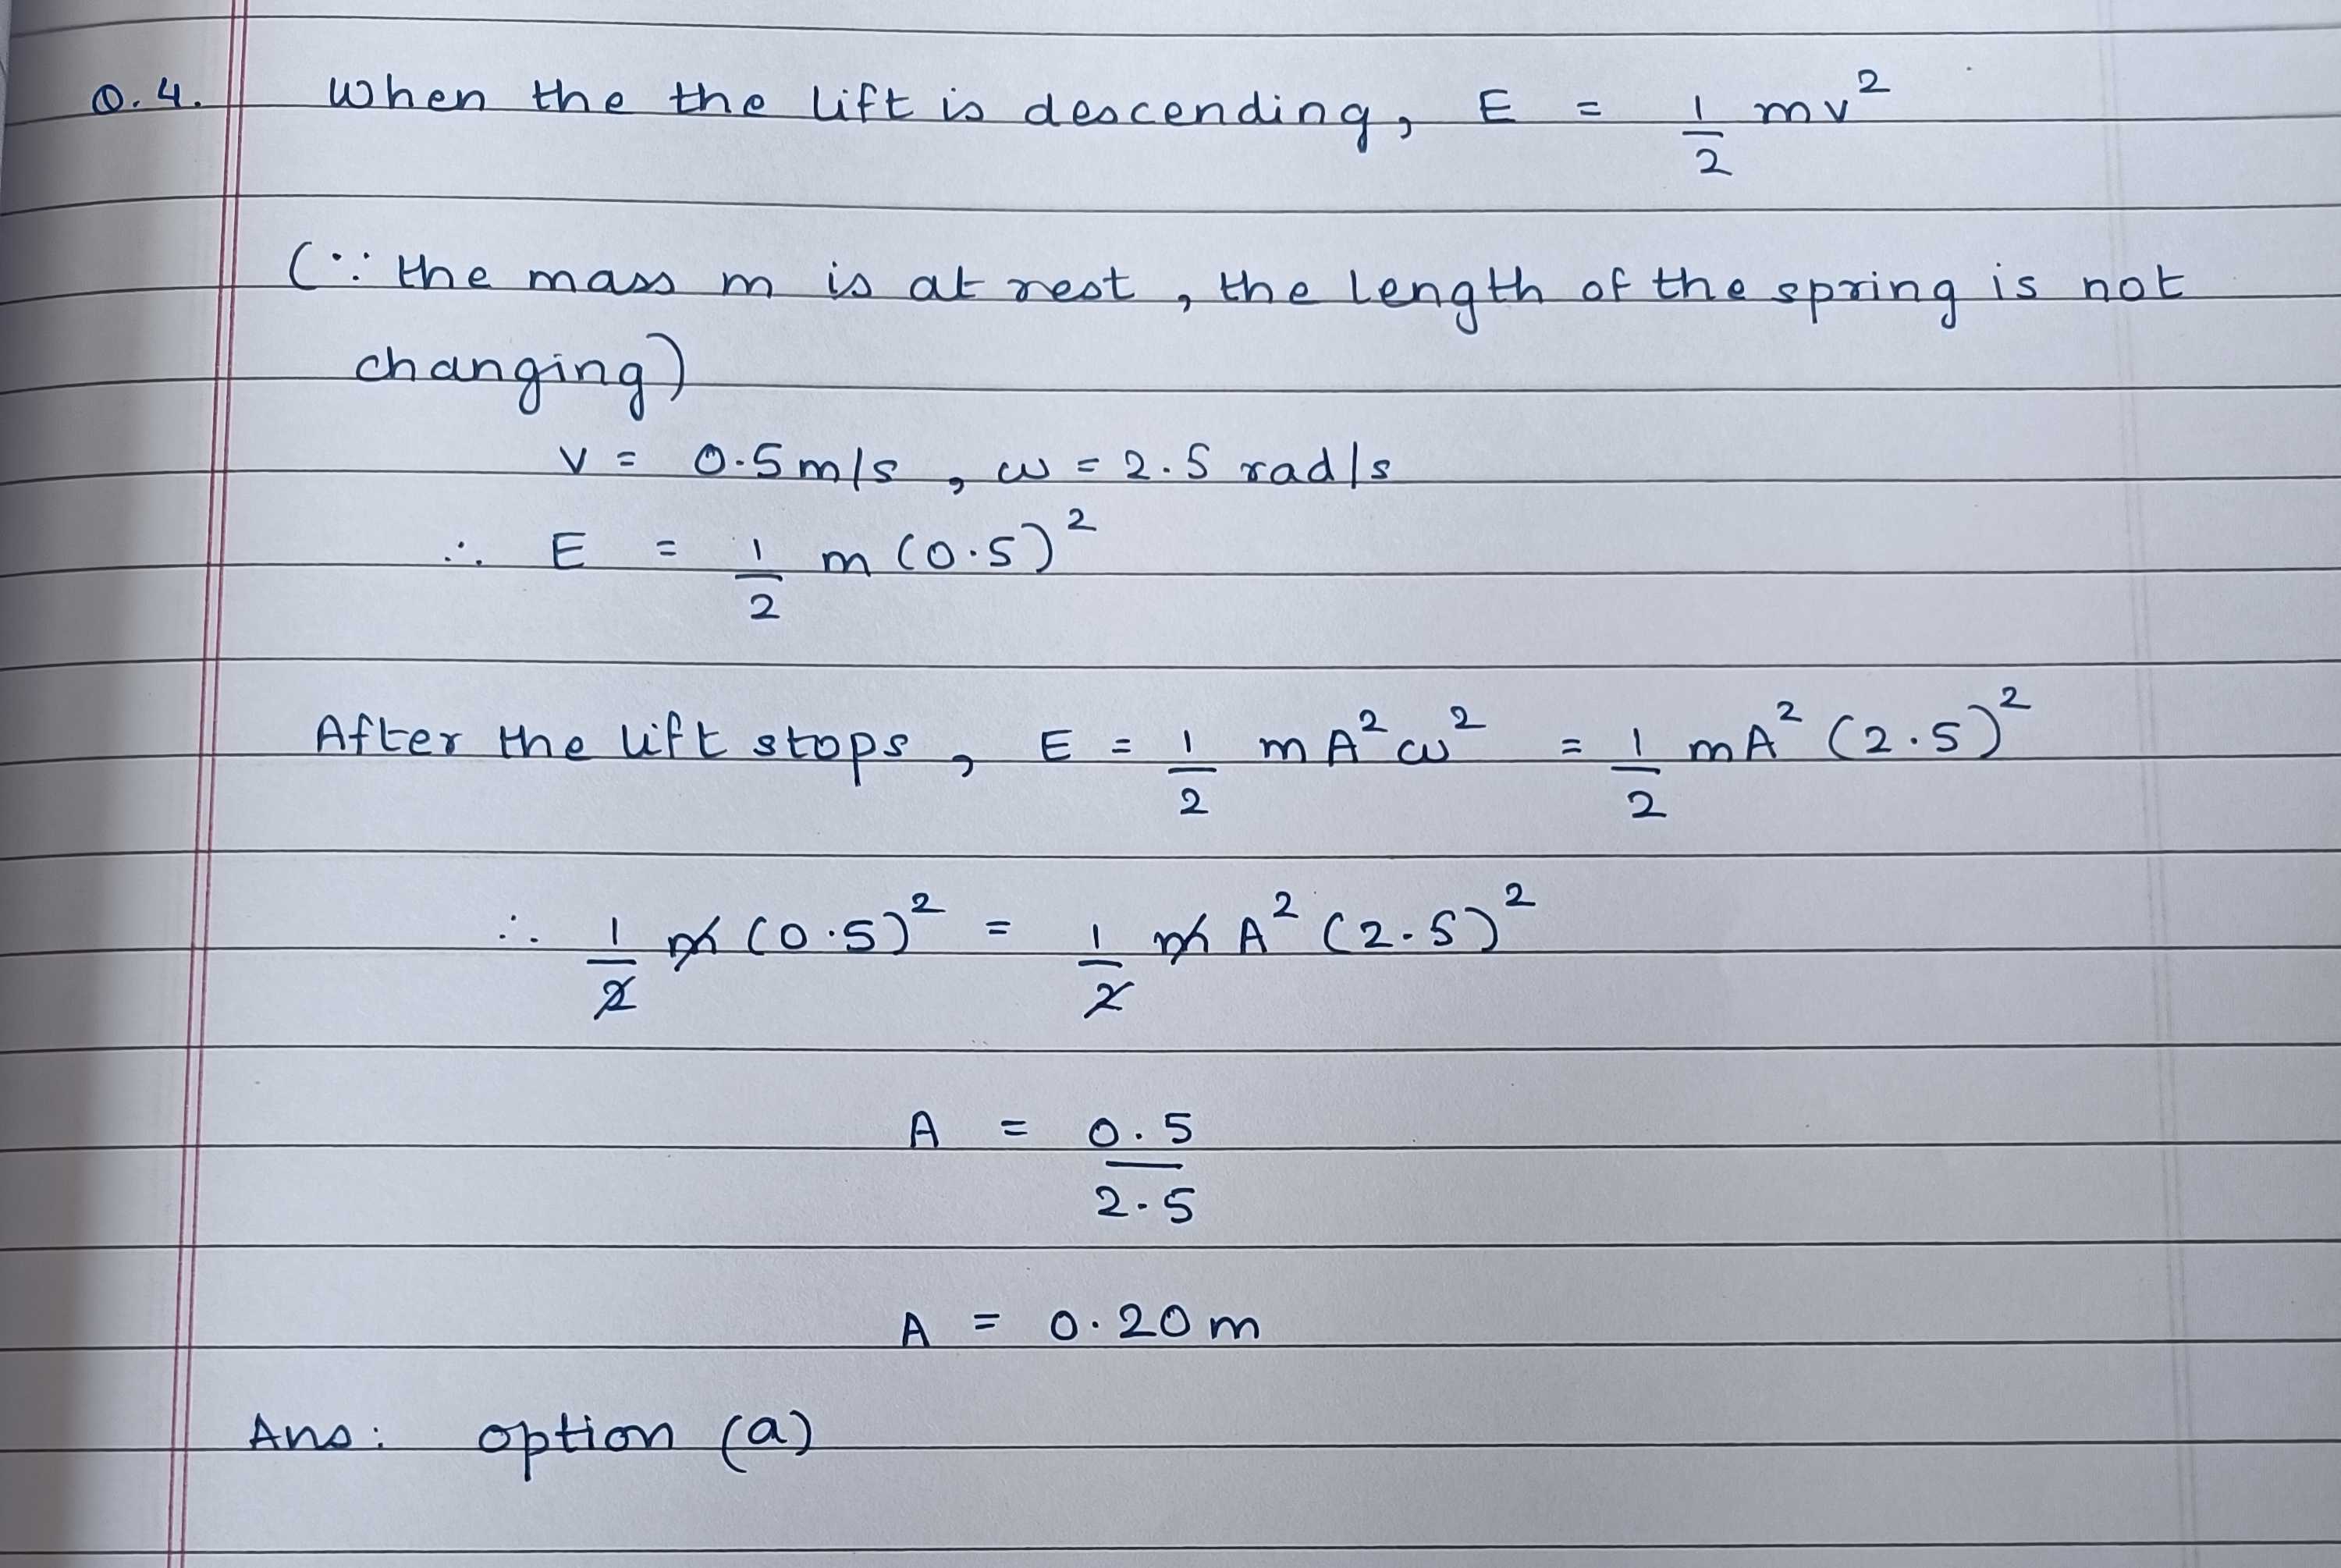 Q.4. When the the lift is descending, E = 1/2 mv²
(∵ the mass m is at rest, the length of the spring is not
changing)
v = 0.5m/s, ω = 2.5 rad/s
∴ E = 1/2 m(0.5)²
After the lift stops, E = 1/2 mA²ω² = 1/2 mA²(2.5)²
∴ 1/2 m(0.5)² = 1/2 m A²(2.5)²
A = 0.5/2.5
A = 0.20m
Ans: option (a)